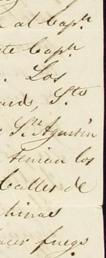 al Capn
te Capn
. Los
ard, Sto
Sn Agustin
tenian los
Caller de
chinas
acer fuego